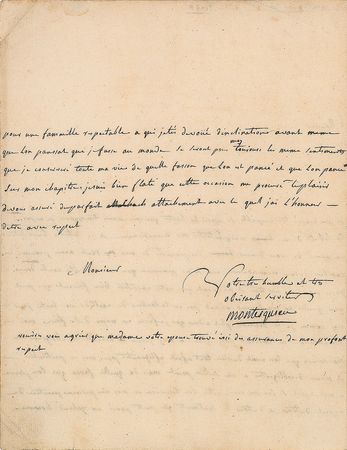 pour une famaille repectable a qui jetés devoüé dinclinations avant meme
que lon pansat que je fasse au monde se seront pour moy toujours le meme sentiments
que je conserveré toute ma vie de quelle fasson que lon et pancé et que lon pance
sur mon chapitre, jesuis bien flaté que cette occasion me procure leplaisir
devous assuré duparfait attachement avec le quel jai l'honneur
detre avec repect
Monsieur
Votre tres humble et tres
obeisant serviteur
montesquieu
madame votre epouse trouve issi du assurance de mon profont
repect